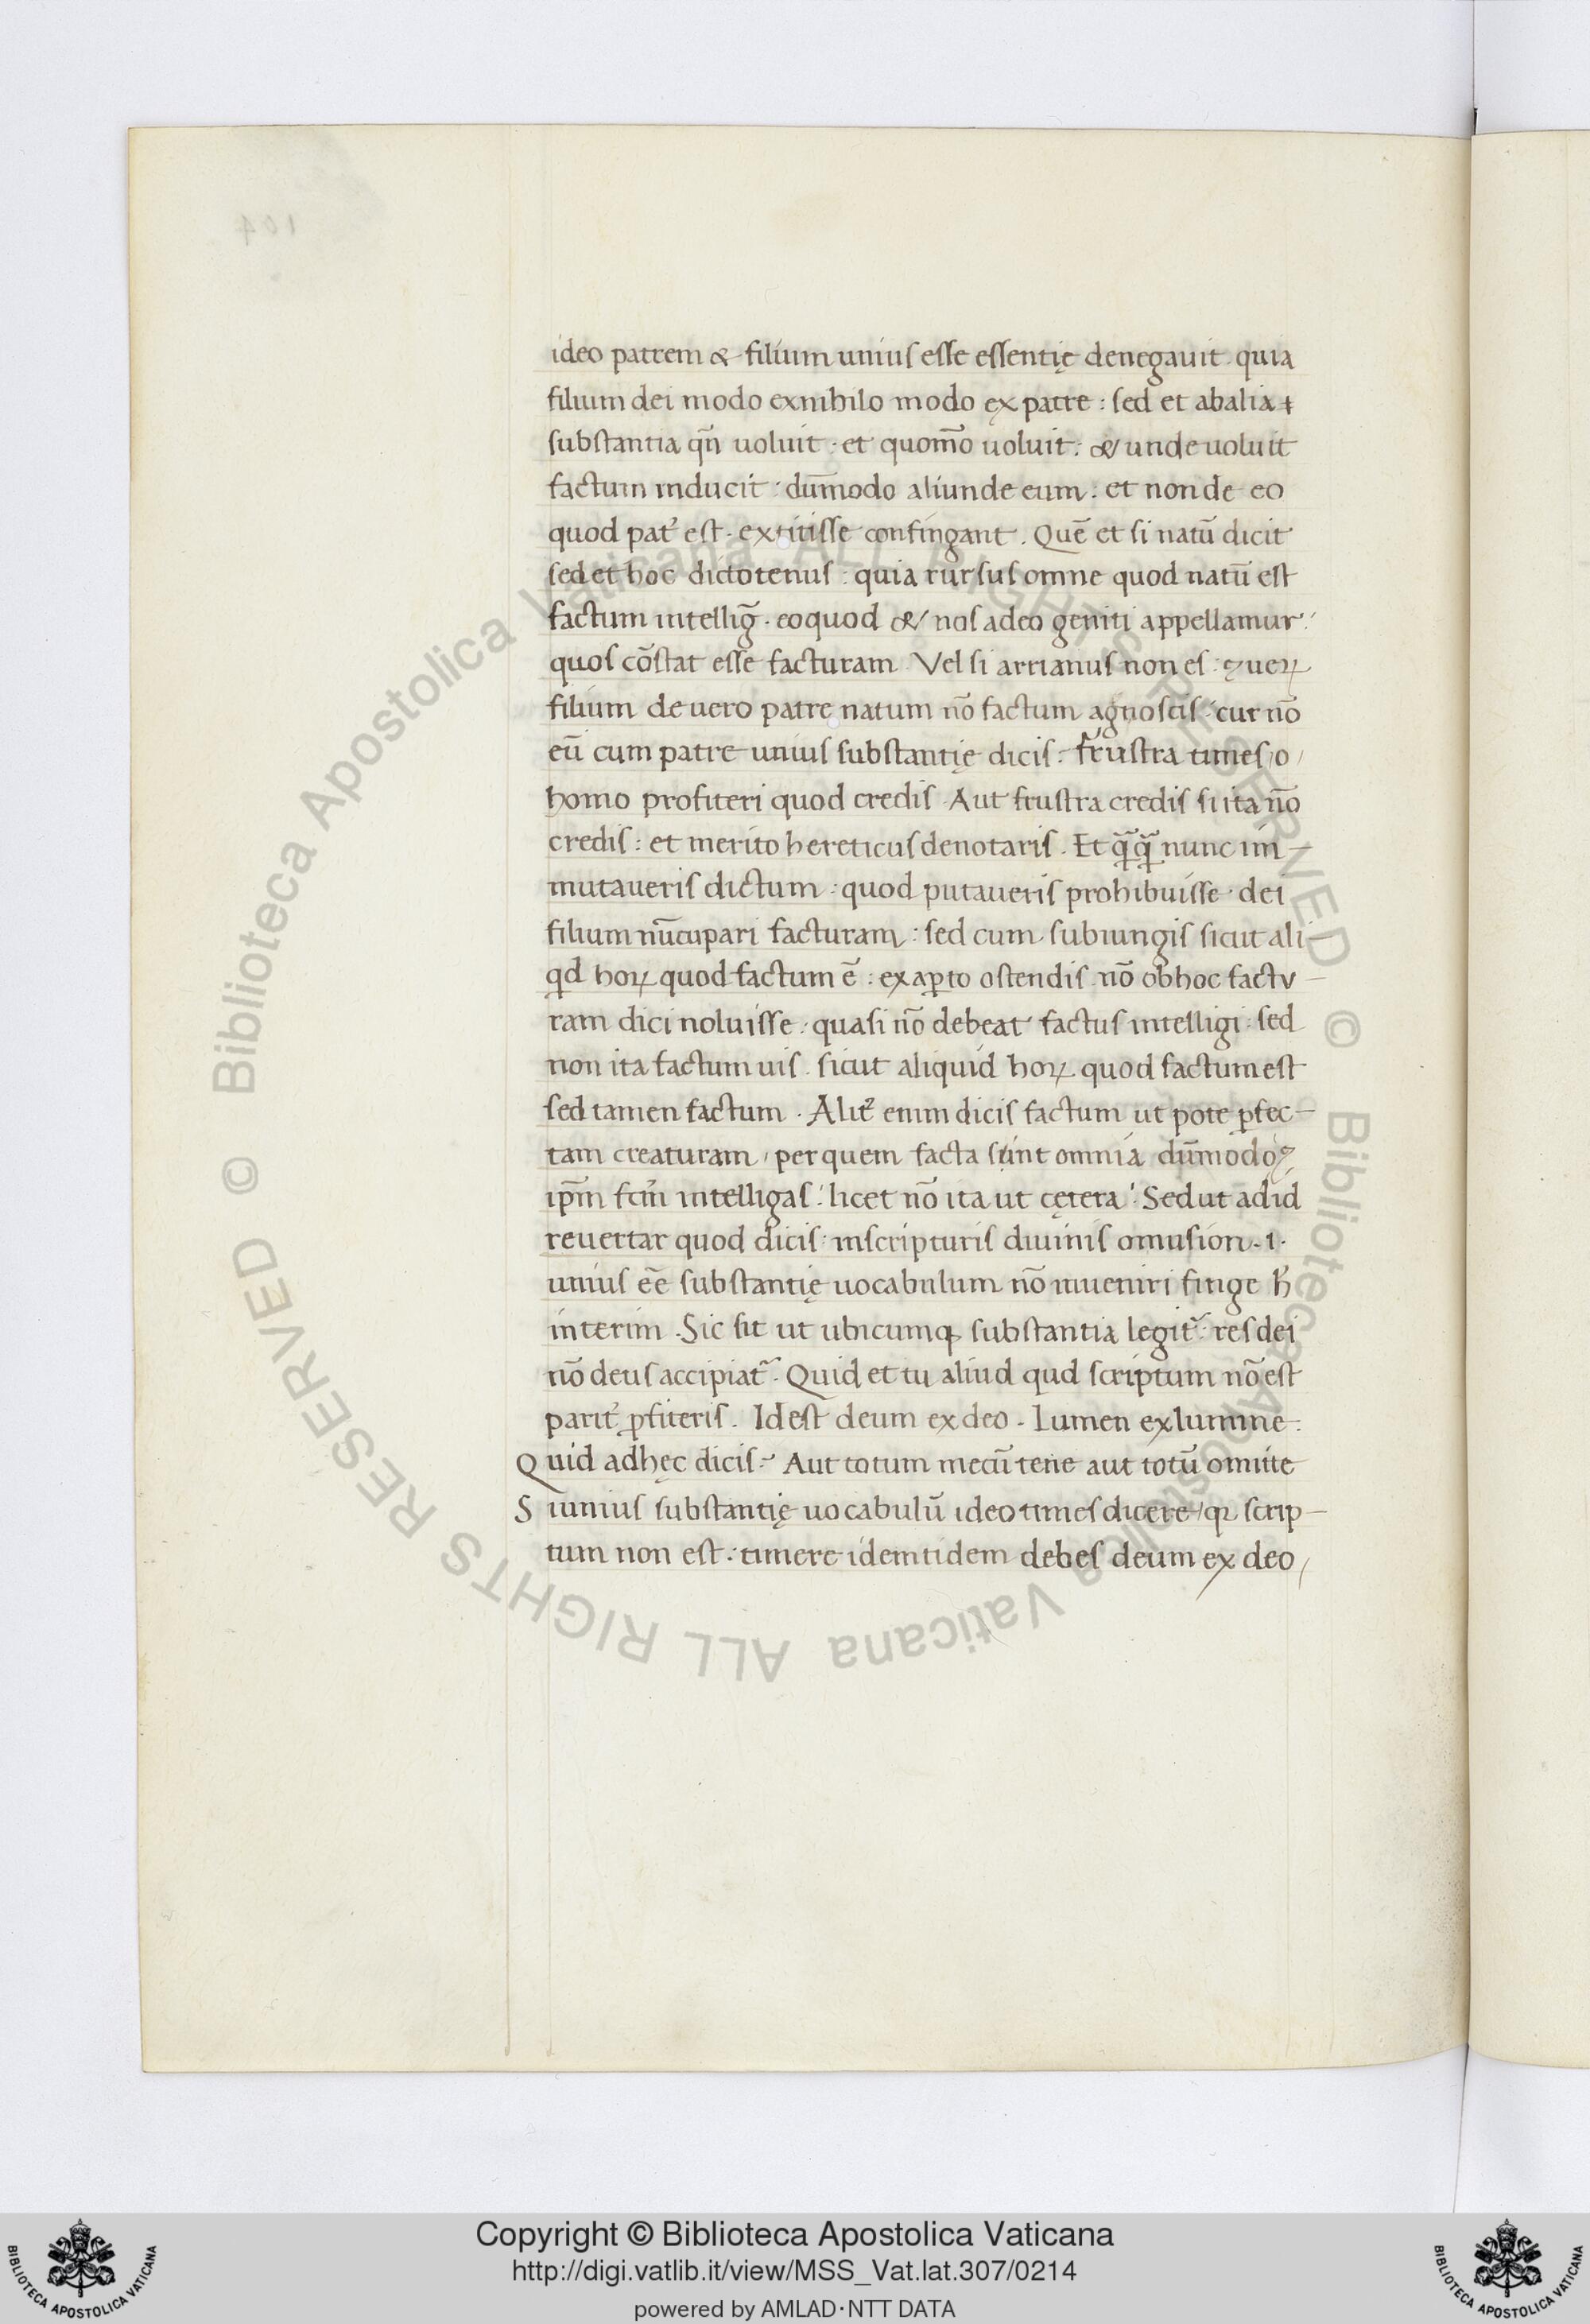 ideo patrem & filium unius esse essentię denegauit. quia
filium dei modo exnihilo modo ex patre: sed et abalia
substantia qn̄ uoluit. et quom̄o uoluit: & unde uoluit
factum inducit: dum̄odo aliunde eum: et non de eo
quod pat᷒ est. extitisse confingant. Quē et si natū dicit
sed et hoc dictotenus: quia rursus omne quod natū est
factum intellig̃. eoquod & nos adeo geniti appellamur:
quos cōstat esse facturam. Vel si arrianus non es: ⁊ ueꝝ
filium de uero patre natum nō factum agnoscis: cur nō
eū cum patre unius substantię dicis: frustra times/o/
homo profiteri quod credis. Aut frustra credis si ita nō
credis: et merito hereticus denotaris. Et q̄q̄ nunc im-
mutaueris dictum: quod putaueris prohibuisse dei
filium nūcupari facturam: sed cum subiungis sicut ali-
qd hoꝝ quod factum ē: exaꝑto ostendis nō obhoc factu-
ram dici noluisse: quasi nō debeat factus intelligi: sed
non ita factum uis. sicut aliquid hoꝝ quod factum est
sed tamen factum. Alit᷒ enim dicis factum ut pote ꝑfec-
tam creaturam, per quem facta sunt omnia dum̄odo ⁊
ip̄m fcm̄ intelligas: licet nō ita ut cętera: Sed ut ad id
revertar quod dicis: inscripturis diuinis omusion. i.
unius eē substantię uocabulum nō inueniri finge h̄
interim. Sic sit ut ubicumq; substantia legit᷒: res dei
nō deus accipiat᷒. Quid et tu aliud qud scriptum nō est
parit᷒ ꝓfiteris. Id est deum ex deo. Lumen ex lumine:
Quid adhęc dicis: Aut totum mecū tene aut totū omitte
Si unius substantię uocabulū ideo times dicere/ qꝛ scrip-
tum non est: timere idemtidem debes deum ex deo/
Copyright © Biblioteca Apostolica Vaticana
http://digi.vatlib.it/view/MSS_Vat.lat.307/0214
powered by AMLAD·NTT DATA
BIBLIOTECA APOSTOLICA VATICANA
BIBLIOTECA APOSTOLICA VATICANA
© Biblioteca Apostolica Vaticana ALL RIGHTS RESERVED
© Biblioteca Apostolica Vaticana ALL RIGHTS RESERVED